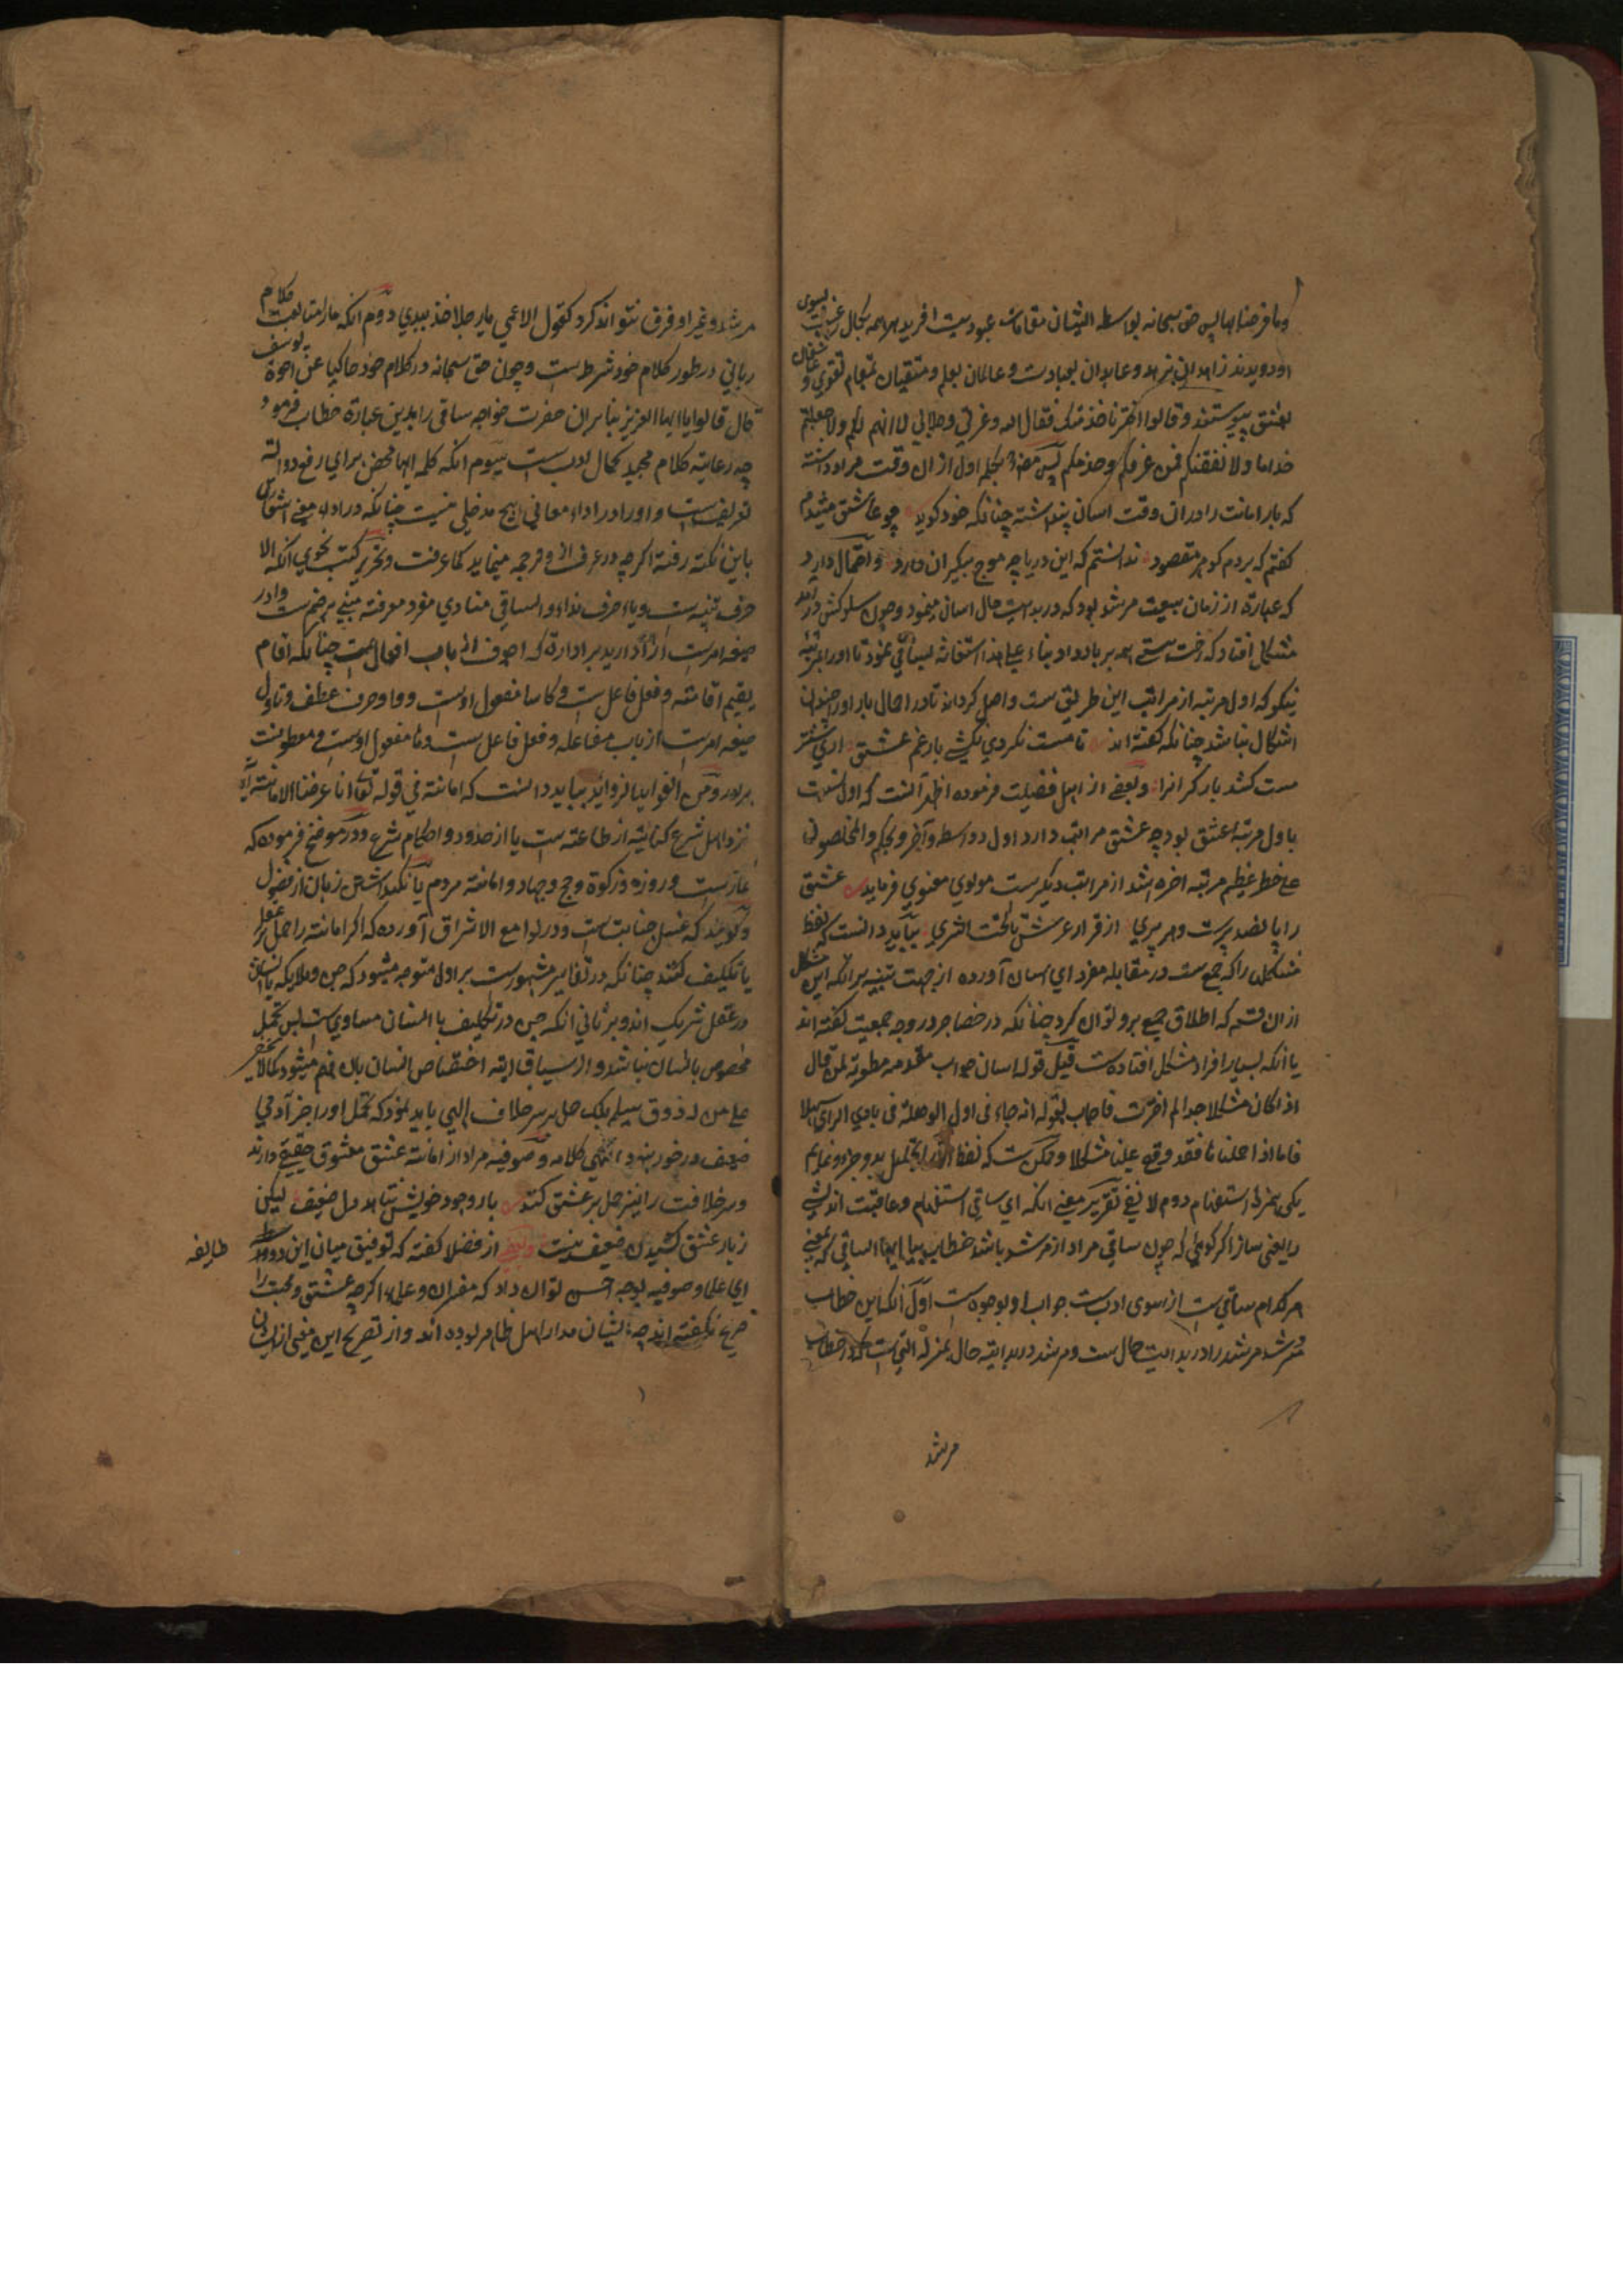 وما فرضنابها پس حق سبحانه بواسطه ایشان مقامات عبودیت افرید همه بکمال رغبت بسوی
او دویدند زاهدان بزهد و عابدان بعبادت و عالمان بعلم و متقیان بمقام تقوی و عاشقان
بعشق پیوستند و قالوا نحن ناخذ منک فقال الله وعزتی وجلالی لا انهم لکم ولاجعلنکم
خداما ولا نفقنکم فمن عرفکم وخدمکم پس حضرة بکلمه اول ازان وقت مراد داشته
که بار امانت را دران وقت اسان پنداشته چنانکه خود کوید چو عاشق میشدم
کفتم که بردم کوهر مقصود ندانستم که این دریا چه موج بیکران دارد و احتمال دارد
که عبارة از زمان بیعت مرشد بود که در بدایت حال اسان مینمود و چون سلوکش در امد
مشکل افتاد که رخت هستی همه برباد داد بناء علی هذا استغاثه بساقی نمود تا او را بمرتبه
نیکو که اول مرتبه از مراتب این طریق ست واصل کرداند تا در احمال بار او را چندان
اشکال نباشد چنانکه کفته اند تا مست نکردی نکشی بار غم عشق اری شتر
مست کشد بار کرانرا و بعضی از اهل فضیلت فرموده اظهر آنست که اول نسبت
باول مرتبه عشق بود چه عشق مراتب دارد اول و واسطه و آخر و بحکم والمخلصون
علی خطر عظیم مرتبه اخره اشد از مراتب دیکرست مولوی معنوی فرماید عشق
را پانصد پرست و هر پری از قراز عرش تا تحت الثری بباید دانست که لفظ
مشکل را که جمع ست در مقابله مفرد ای اسان آورده از جهت تنبیه بر انکه این مشکل
ازان قسم که اطلاق جمع برو توان کرد چنانکه در حضاجر در وجه جمعیت کفته اند
یا آنکه بسیار افراد مشکل افتاده ست قیل قوله اسان جواب مقدمه مطویه لمن قال
اذا کان مشکلا جدا لم اخترت فاجاب بقوله انه جاء فی اول الوهلة فی بادی الرای سهلا
فاما اذا حملناها فقد وقع علینا مشکلا و ممکن ست که لفظ الا را تحلیل بدو جزو نمایم
یکی همزة استفهام دوم لا نفی تقریر معنی انکه ای ساقی استفهام و عاقبت اندیشی
را یعنی ساز اکر کوئی که چون ساقی مراد از مرشد باشد خطاب بیا ایها الساقی که یعنی
هر کدام ساقی ست از سوی ادب ست جواب او بوجوه ست اول آنکه این خطاب
مرشد را در بدایت حال ست و مرشد در بدایة حال بمنزله التی ست که در خطاب
مرشد
مرشد و غیر او فرق نتواند کرد کقول الاعمی یا رجلا خذ بیدی دوم انکه ما را متابعت کلام
ربانی در طور کلام خود شرط ست و چون حق سبحانه در کلام خود حاکیا عن اخوة یوسف
قال قالوا یا ایها العزیز بنابران حضرت خواجه ساقی را بدین عبارة خطاب فرمود
چه رعایة کلام مجید کمال ادب ست سیوم انکه کلمه ایها محض برای رفع دو اله
تعریف ست و او را در اداء معانی هیچ مدخلی نیست چنانکه در اداء معنی اشتغال
باین نکته رفته اکرچه در عرف از و مرحمه مینماید کما عرفت و تحریر کتب نحوی انکه الا
حرف تنبیه ست و یا حرف نداء و الساقی منادی مفرد معرفه مبنی بر ضم ست و ادر
صیغه امرست از ادار یدیر ادارة که اجوف از باب افعال ست چنانکه اقام
یقیم اقامته و فعل فاعل ست و کاسا مفعول اوست و و او حرف عطف و ناول
صیغه امرست از باب مفاعله و فعل فاعل ست و ها مفعول اوست و معطوفست
بر ادر و من الفواید الزواید بباید دانست که امانة فی قوله تعا انا عرضنا الامانة الآیة
نزد اهل شرع کنایة از طاعة ست یا از حدود و احکام شرع و در موضح فرموده که
نمازست و روزه و زکوة و حج و جهاد و امانة مردم یا نکهداشتن زبان از فضول
و کویند که غسل جنابت ست و در لوامع الاشراق آورده که اکر امانة را حمل بر عقل
یا تکلیف کنند چنانکه در تفاسیر مشهورست بر اول متوجه میشود که جن و ملایکه با انسان
در عقل شریک اند و بر ثانی انکه جن در تکلیف با انسان مساوی ست پس تحمل
مخصوص بانسان نباشد و از سیاق ایة اختصاص انسان بان فهم میشود کما لا یخفی
علی من له ذوق سیلم بلک حمل بر سر خلاف الهی باید نمود که تحمل او را جز آدمی
ضعیف در خور نبود انتهی کلامه و صوفیه مراد از امانة عشق معشوق حقیقی دارند
و سر خلافت را نیز حمل بر عشق کنند بار وجود خویش نتابد دل ضعیف لیکن
زبار عشق کشیدن ضعیف نیست و بعضی از فضلا کفته که توفیق میان این دو طایفه
ای علما و صوفیه بوجه احسن توان داد که مفسران و علما اکرچه عشق و محبت را
صریح نکفته اند چه ایشان مدار اهل ظاهر بوده اند و از تصریح این معنی از